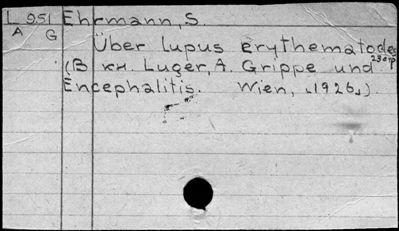 L 951 Ehrmann, S.
A G
Über lupus erythematodes
23 стр
(В кн. Luger, A. Grippe und
Encephalitis. Wien, 1926.)